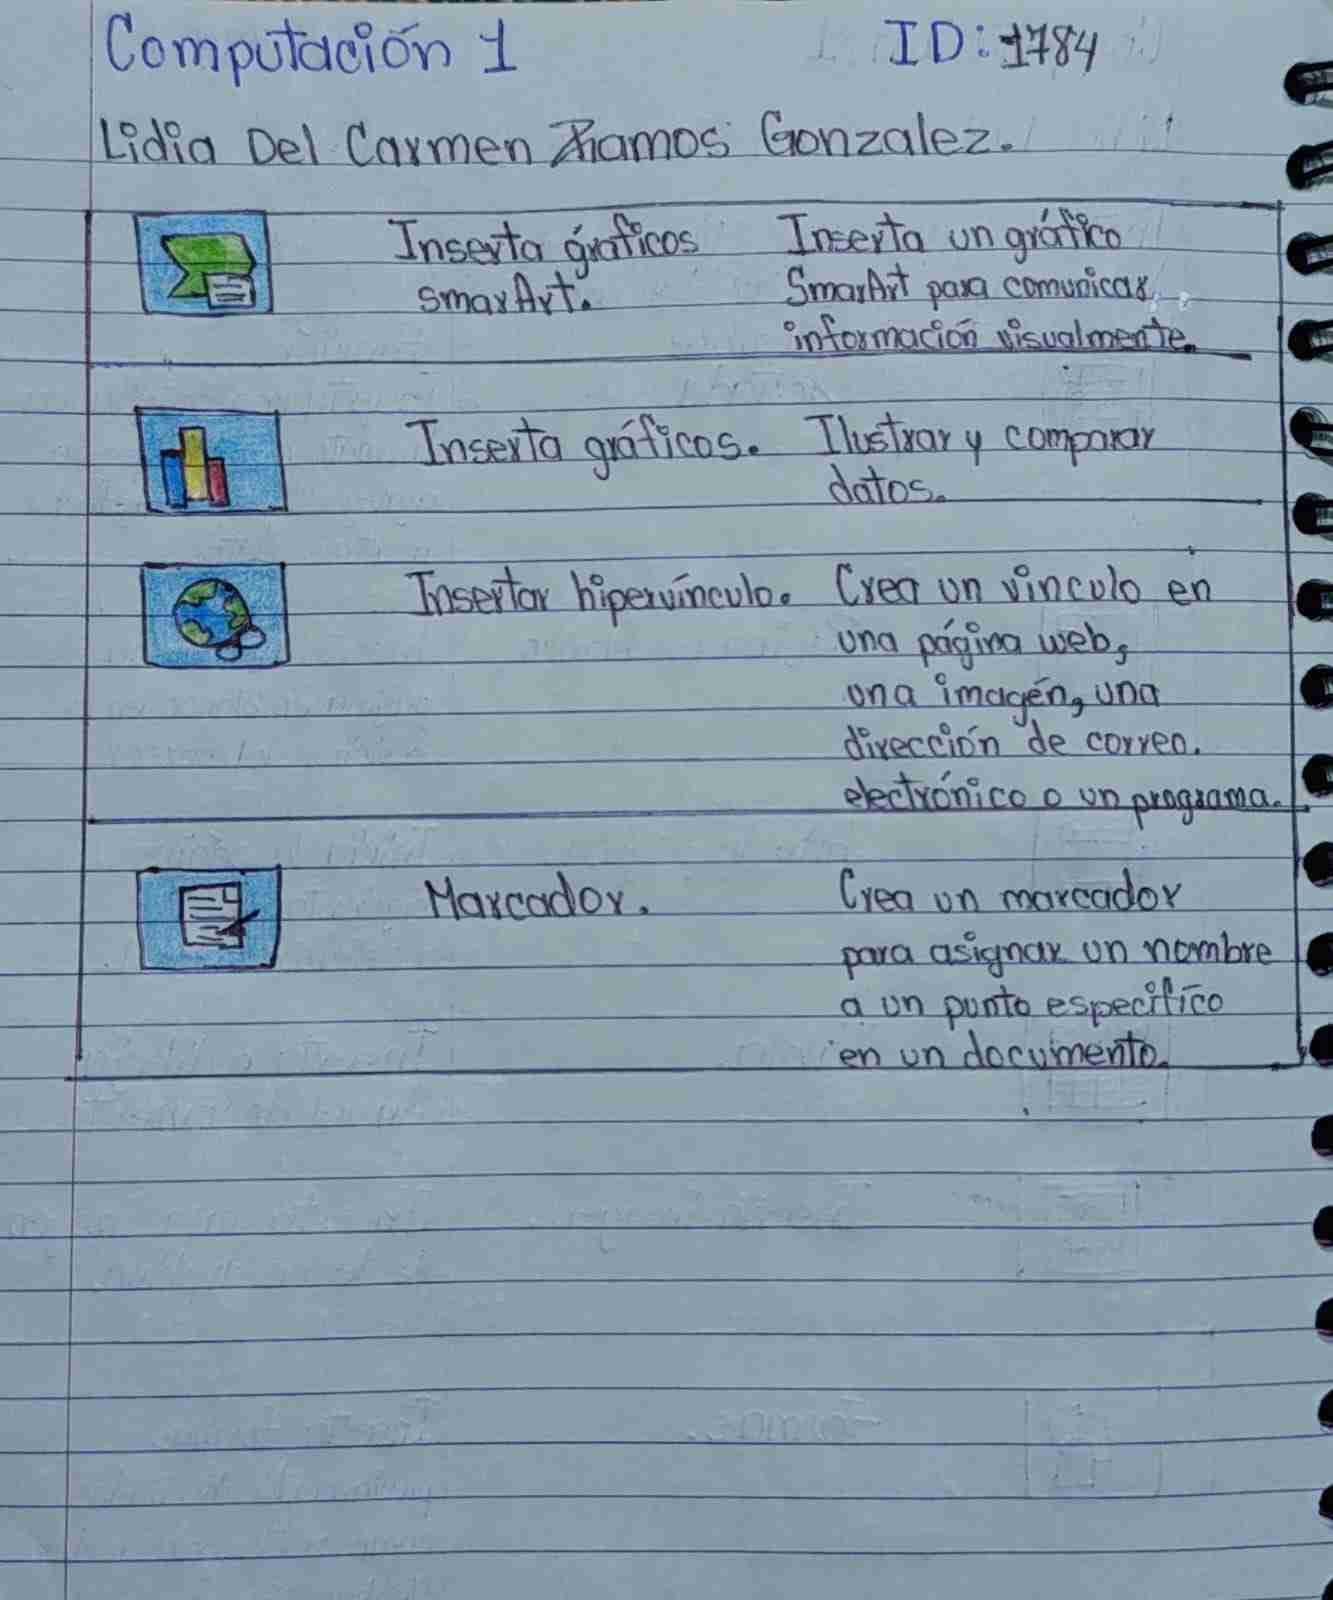 Computación 1 ID: 1784
Lidia Del Carmen Ramos Gonzalez.
Inserta gráficos Inserta un gráfico
smarArt. SmarArt para comunicar
información visualmente.
Inserta gráficos. Ilustrar y comparar
datos.
Insertar hipervínculo. Crea un vinculo en
una página web,
una imagén, una
dirección de correo.
electrónico o un programa.
Marcador. Crea un marcador
para asignar un nombre
a un punto específico
en un documento.